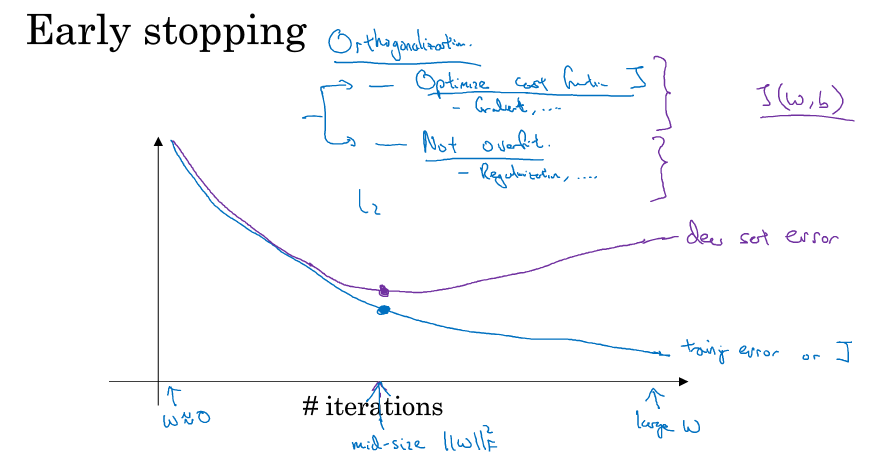 Early stopping
Orthogonalization.
— Optimize cost function J
- Gradient, ....
J(w,b)
— Not overfit.
- Regularization, ....
L2
dev set error
training error or J
w≈0
# iterations
mid-size ||w||²_F
large w